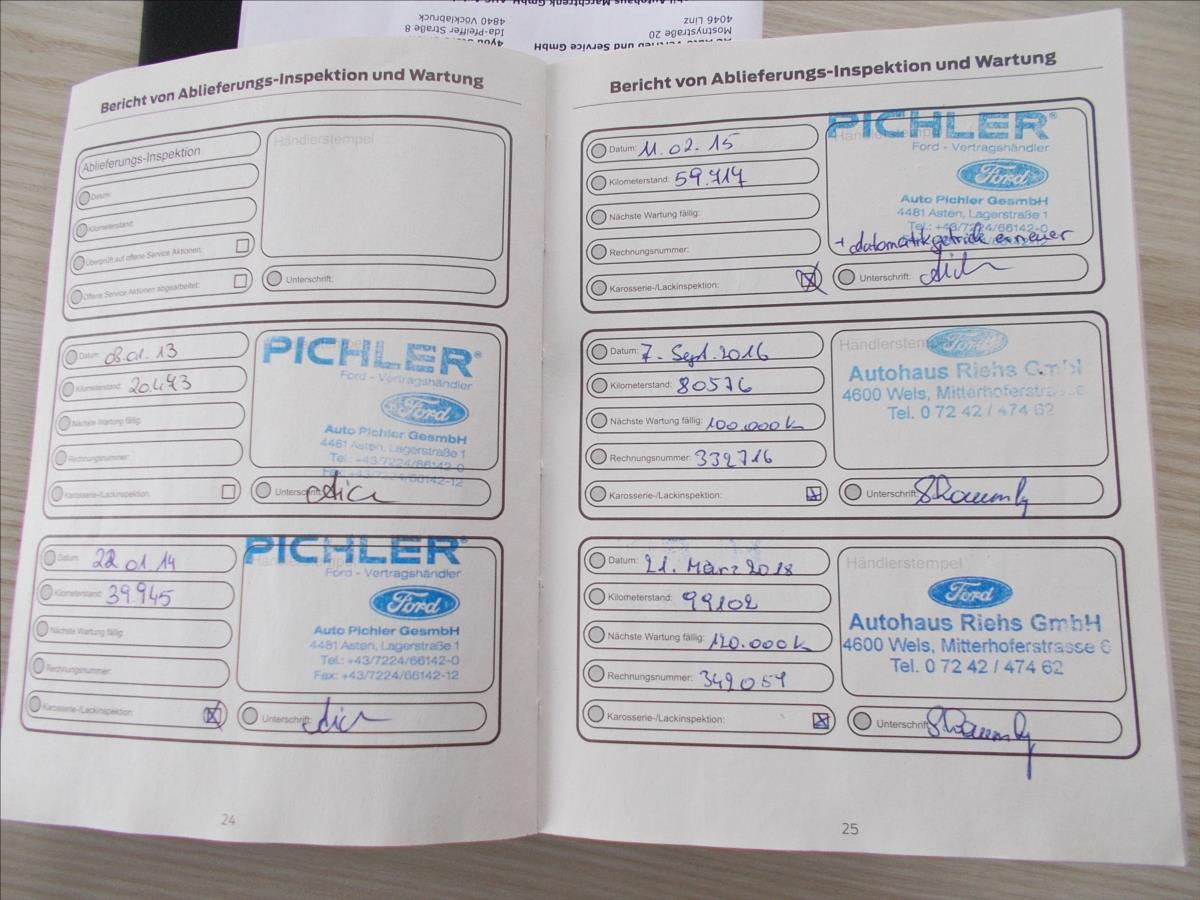 4840 Vöcklabruck
Ida-Pfeiffer Straße 8
4046 Linz
Mostnystraße 20
und Service GmbH
Bericht von Ablieferungs-Inspektion und Wartung
Ablieferungs-Inspektion
Datum:
Kilometerstand:
Überprüft auf offene Service Aktionen:
Offene Service Aktionen abgearbeitet:
Händlerstempel
Unterschrift:
Datum: 08.01.13
Kilometerstand: 20.473
Nächste Wartung fällig:
Rechnungsnummer:
Karosserie-/Lackinspektion:
PICHLER®
Ford - Vertragshändler
Ford
Auto Pichler GesmbH
4481 Asten, Lagerstraße 1
Tel.: +43/7224/66142-0
Fax: +43/7224/66142-12
Unterschrift:
Datum: 22.01.14
Kilometerstand: 39.945
Nächste Wartung fällig:
Rechnungsnummer:
Karosserie-/Lackinspektion:
PICHLER®
Händlerstempel
Ford - Vertragshändler
Ford
Auto Pichler GesmbH
4481 Asten, Lagerstraße 1
Tel.: +43/7224/66142-0
Fax: +43/7224/66142-12
Unterschrift:
24
Bericht von Ablieferungs-Inspektion und Wartung
Datum: 11.02.15
Kilometerstand: 59.714
Nächste Wartung fällig:
Rechnungsnummer:
Karosserie-/Lackinspektion:
PICHLER®
Ford - Vertragshändler
Ford
Auto Pichler GesmbH
4481 Asten, Lagerstraße 1
Tel.: +43/7224/66142-0
Unterschrift:
Datum: 7. Sept. 2016
Kilometerstand: 80576
Nächste Wartung fällig: 100.000 k
Rechnungsnummer: 332716
Karosserie-/Lackinspektion:
Händlerstempel
Ford
Autohaus Riehs GmbH
4600 Wels, Mitterhoferstrasse
Tel. 0 72 42 / 474 62
Unterschrift:
Datum: 21. März 2018
Kilometerstand: 99102
Nächste Wartung fällig: 120.000 k
Rechnungsnummer: 349051
Karosserie-/Lackinspektion:
Händlerstempel
Ford
Autohaus Riehs GmbH
4600 Wels, Mitterhoferstrasse 6
Tel. 0 72 42 / 474 62
Unterschrift:
25